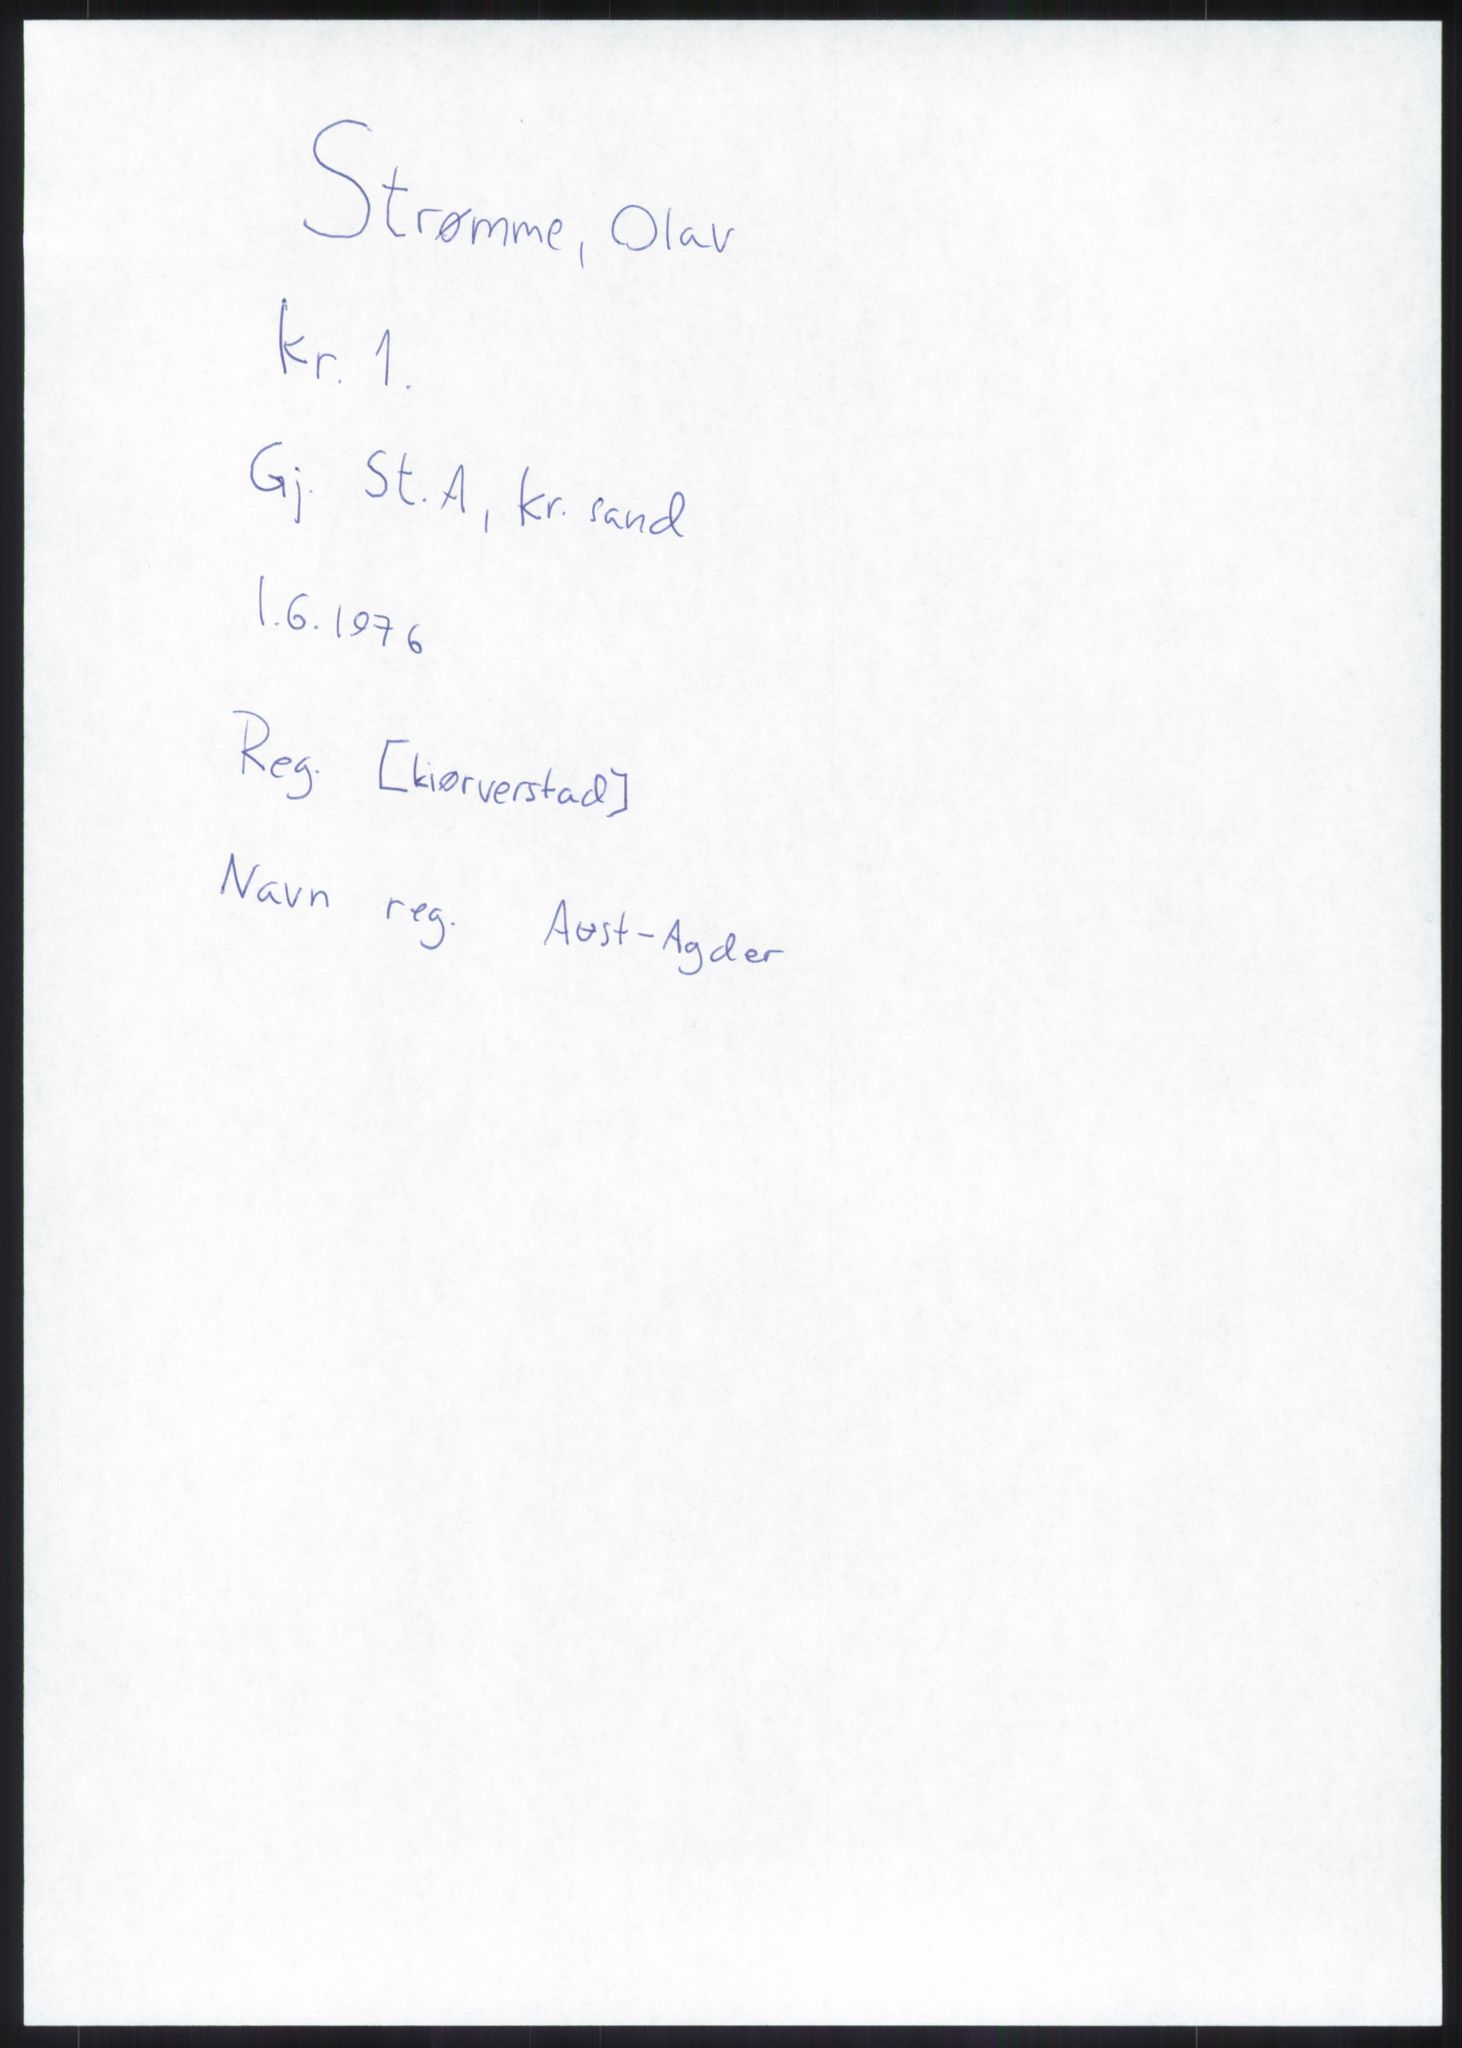 Strømme, Olav
kr. 1.
Gj. St. A, kr. sand
1.6.1976
Reg. [kiørverstad]
Navn reg. Aust-Agder